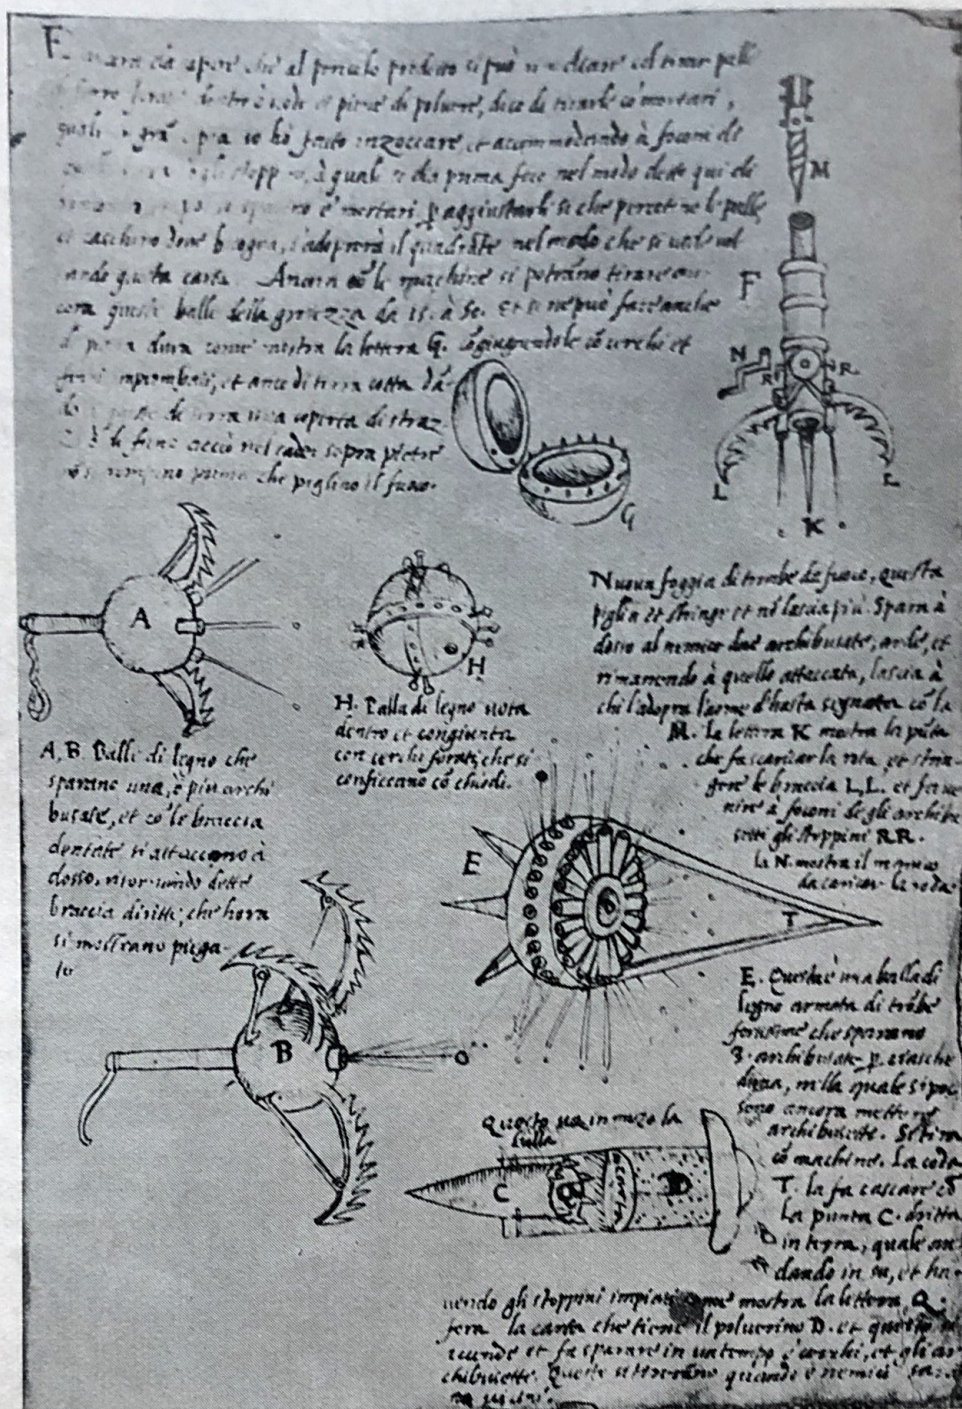 che al pericolo predetto si può rimediare col tirar palle
di ferro dentro vode et piene di poluere, dico di tirarle cō mortari,
quali io hò fatto inzoccare, et accommodando à foconi
gli stoppini, à quali si dia prima foco nel modo detto qui di
e' mortari p aggiustarli si che percotino le palle
et caschino doue bisogna, s'adoprerà il quadrāte nel modo che si uede uol
tando questa carta. Ancora cō le machine si potrāno tirare an-
cora queste balle della grossezza da 15. à 50. Et se ne può fare anche
di pietra dura come mostra la lettera G. cōgiugnendole cō cerchi et
ferri impiombati, et anco di terra cotta
di terra una coperta di straz
di fieno acciò nel cader sopra pietre
nō si rompino prima che piglino il fuoco.
M
F
N
R
R
L
L
K
G
A
H
Nuoua foggia di trombe da fuoco, questa
piglia et stringe et nō lascia più. Spara à
dosso al nemico due archibusate, arde, et
rimanendo à quello attaccata, lascia à
chi l'adopra l'arme d'hasta segnata cō la
M. la lettera K mostra la pūta
che fa scaricar la rota, et strin-
gere le braccia L.L. et fa ue
nire à foconi de gli archibu
setti gli stoppini RR.
la N. mostra il manico
da caricar la roda.
H. Palla di legno uota
dentro et congiunta
con cerchi forati, che si
conficcano cō chiodi.
A, B. Balle di legno che
sparano una, ò più archi
busate, et cō le braccia
dentate si attaccono à
dosso, ritornando dette
braccia diritte, che hora
si mostrano piega-
te
E
T
B
E. Questa è una balla di
legno armata di trōbe
ferissime che sparano
3. archibusate p ciasche
duna, nella quale si pos
sono ancora mettere
archibusette. Si tira
cō machine. La coda
T. la fa cascare cō
la punta C. dritta
in terra, quale an
dando in su, et ha-
uendo gli stoppini impiati come mostra la lettera Q.
fora la carta che tiene il poluerino D. et questo
accende et fa sparare in un tempo e' cerchi, et gli ar
chibusette. Queste si tireranno quando e' nemici
uicini.
Questo ua in mezo la
balla
C
Q
carta
D